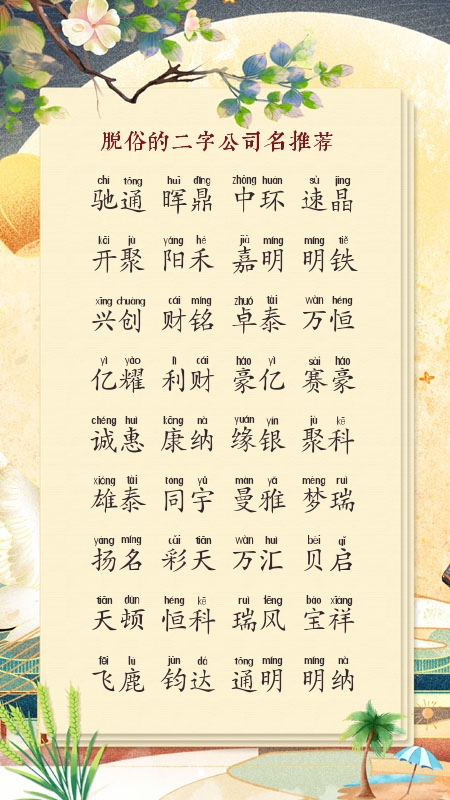 脱俗的二字公司名推荐
chí tōng huī dǐng zhōng huán sù jīng
驰通 晖鼎 中环 速晶
kāi jù yáng hé jiā míng míng tiě
开聚 阳禾 嘉明 明铁
xīng chuàng cái míng zhuó tài wàn héng
兴创 财铭 卓泰 万恒
yì yào lì cái háo yì sài háo
亿耀 利财 豪亿 赛豪
chéng huì kāng nà yuán yín jù kē
诚惠 康纳 缘银 聚科
xióng tài tóng yǔ màn yǎ mèng ruì
雄泰 同宇 曼雅 梦瑞
yáng míng cǎi tiān wàn huì bèi qǐ
扬名 彩天 万汇 贝启
tiān dùn héng kē ruì fēng bǎo xiáng
天顿 恒科 瑞风 宝祥
fēi lù jūn dá tōng míng míng nà
飞鹿 钧达 通明 明纳